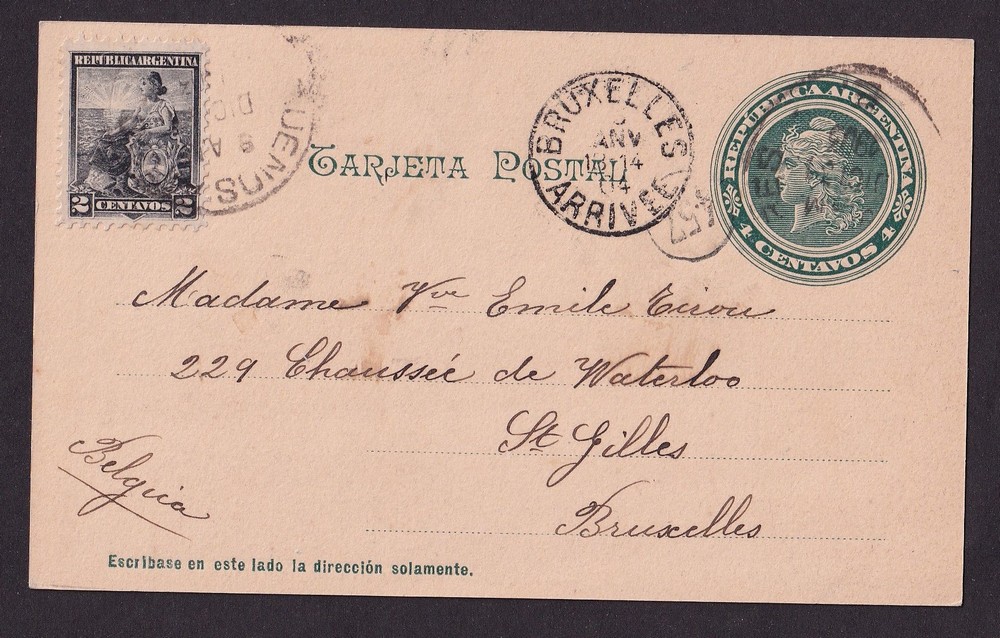 REPUBLICA ARGENTINA
2 CENTAVOS 2
BUENOS
DIC
9
TARJETA POSTAL
BRUXELLES
JANV
14
04
ARRIVEE
REPUBLICA ARGENTINA
4 CENTAVOS 4
Madame Vve Emile Tirou
229 Chaussée de Waterloo
St Gilles
Belgica
Bruxelles
Escribase en este lado la dirección solamente.